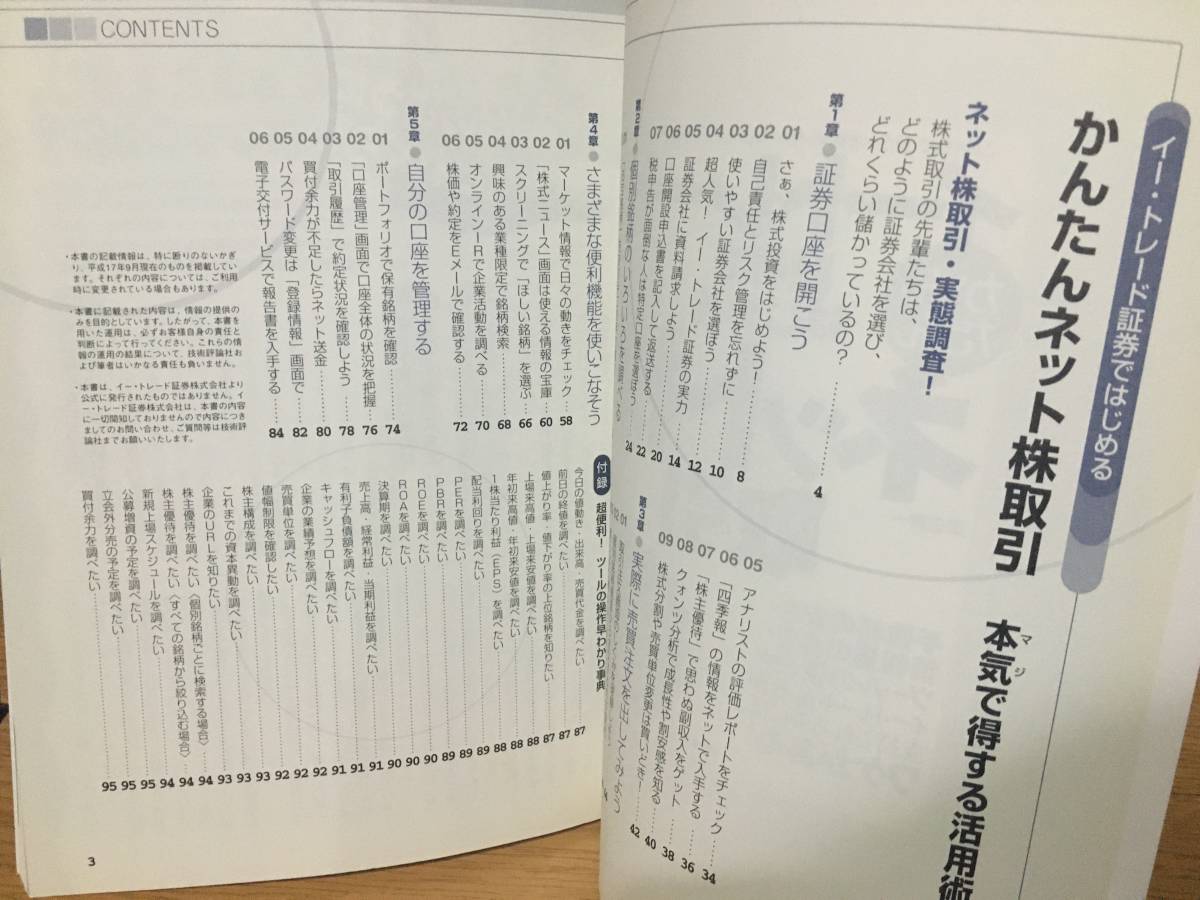 イー・トレード証券ではじめる
かんたんネット株取引
本気で得する活用術
マジ
ネット株取引・実態調査!
株式取引の先輩たちは、
どのように証券会社を選び、
どれくらい儲かっているの?……4
第1章 ● 証券口座を開こう
01 さぁ、株式投資をはじめよう!……8
02 自己責任とリスク管理を忘れずに……10
03 使いやすい証券会社を選ぼう……12
04 超人気! イー・トレード証券の実力……14
05 証券会社に資料請求しよう……20
06 口座開設申込書を記入して返送する……22
07 税申告が面倒な人は特定口座を選ぼう……24
第2章 ●
05 アナリストの評価レポートをチェック……34
06 「四季報」の情報をネットで入手する……36
07 「株主優待」で思わぬ副収入をゲット……38
08 クォンツ分析で成長性や割安感を知る……40
09 株式分割や売買単位変更は買いどき!……42
第3章 ● 実際に売買注文を出してみよう
01
02
CONTENTS
第4章 ● さまざまな便利機能を使いこなそう
01 マーケット情報で日々の動きをチェック……58
02 「株式ニュース」画面は使える情報の宝庫……60
03 スクリーニングで「ほしい銘柄」を選ぶ……66
04 興味のある業種限定で銘柄検索……68
05 オンラインIRで企業活動を調べる……70
06 株価や約定をEメールで確認する……72
第5章 ● 自分の口座を管理する
01 ポートフォリオで保有銘柄を確認……74
02 「口座管理」画面で口座全体の状況を把握……76
03 「取引履歴」で約定状況を確認しよう……78
04 買付余力が不足したらネット送金……80
05 パスワード変更は「登録情報」画面で……82
06 電子交付サービスで報告書を入手する……84
付録 超便利! ツールの操作早わかり事典
今日の値動き・出来高・売買代金を調べたい……87
前日の終値を調べたい……87
値上がり率・値下がり率の上位銘柄を知りたい……87
上場来高値・上場来安値を調べたい……88
年初来高値・年初来安値を調べたい……88
1株当たり利益(EPS)を調べたい……88
配当利回りを調べたい……89
PERを調べたい……89
PBRを調べたい……89
ROEを調べたい……90
ROAを調べたい……90
決算期を調べたい……90
売上高・経常利益・当期利益を調べたい……91
有利子負債額を調べたい……91
キャッシュフローを調べたい……91
企業の業績予想を調べたい……92
売買単位を調べたい……92
値幅制限を確認したい……92
株主構成を調べたい……93
これまでの資本異動を調べたい……93
企業のURLを知りたい……93
株主優待を調べたい〈個別銘柄ごとに検索する場合〉……94
株主優待を調べたい〈すべての銘柄から絞り込む場合〉……94
新規上場スケジュールを調べたい……94
公募増資の予定を調べたい……95
立会外分売の予定を調べたい……95
買付余力を調べたい……95
・本書の記載情報は、特に断りのないかぎ
り、平成17年9月現在のものを掲載してい
ます。それぞれの内容については、ご利用
時に変更されている場合もあります。
・本書に記載された内容は、情報の提供の
みを目的としています。したがって、本書を
用いた運用は、必ずお客様自身の責任と
判断によって行ってください。これらの情
報の運用の結果について、技術評論社お
よび筆者はいかなる責任も負いません。
・本書は、イー・トレード証券株式会社より
公式に発行されたものではありません。イ
ー・トレード証券株式会社は、本書の内容
に一切関知しておりませんので内容につき
ましてのお問い合わせ、ご質問等は技術評
論社までお願いいたします。
3